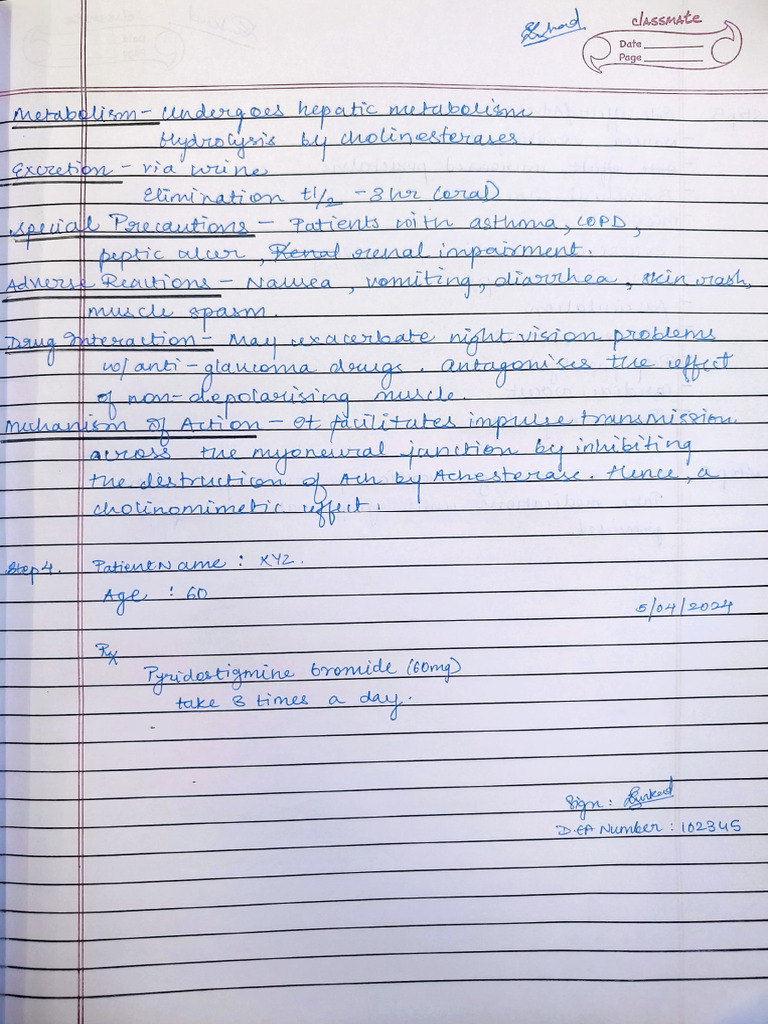 classmate
Date
Page
Metabolism - Undergoes hepatic metabolism
Hydrolysis by cholinesterases.
Excretion - via urine
Elimination t1/2 - 3 hr (oral)
Special Precautions - Patients with asthma, COPD,
peptic ulcer, Renal renal impairment.
Adverse Reactions - Nausea, vomiting, diarrhea, skin rash,
muscle spasm.
Drug Interaction - May exacerbate night vision problems
w/ anti-glaucoma drugs. Antagonises the effect
of non-depolarising muscle.
Mechanism of Action - It facilitates impulse transmission
across the myoneural junction by inhibiting
the destruction of Ach by Achesterase. Hence, a
cholinomimetic effect.
Step 4. Patient Name : XYZ.
Age : 60
5/04/2024
Rx
Pyridostigmine bromide (60mg)
take 3 times a day.
Sign:
DEA Number : 102345